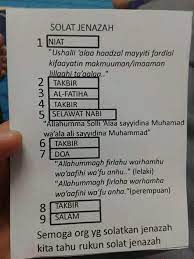 SOLAT JENAZAH
1 NIAT
"Ushalli 'alaa haadzal mayyiti fardlal
kifaayatin makmuuman/imaaman
lillaahi ta'aalaa."
2 TAKBIR
3 AL-FATIHA
4 TAKBIR
5 SELAWAT NABI
"Allahumma Solli 'Alaa sayyidina Muhammad
wa'ala ali sayyidina Muhammad"
6 TAKBIR
7 DOA
"Allahummagh firlahu warhamhu
wa'aafihi wa'fu anhu.." (lelaki)
"Allahummagh firlaha warhamha
wa'aafiha wa'fu anha.."(perempuan)
8 TAKBIR
9 SALAM
Semoga org yg solatkan jenazah
kita tahu rukun solat jenazah